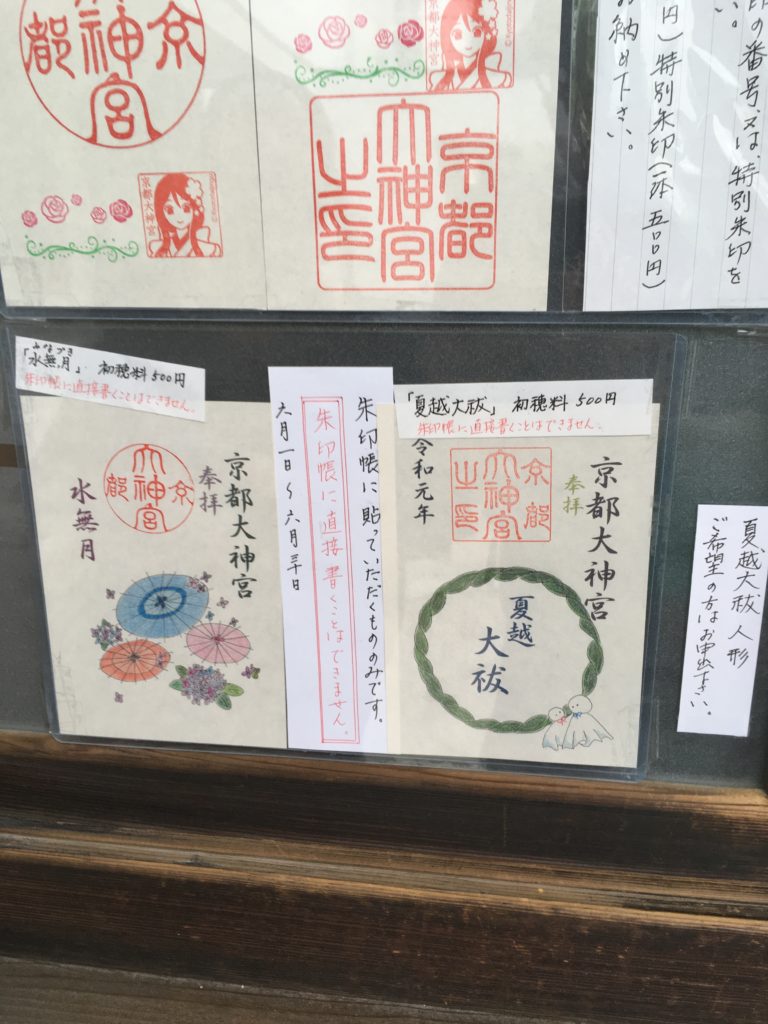 京都
大神宮
京都大神宮
京都
大神宮
之印
京都大神宮
印の番号又は、特別朱印を
い。
円)特別朱印(一体 五〇〇円)
お納め下さい。
みなづき
「水無月」 初穂料500円
朱印帳に直接書くことはできません。
京都大神宮
奉拝
京都
大神宮
水無月
朱印帳に貼っていただくもののみです。
朱印帳に直接書くことはできません。
六月一日~六月三十日
「夏越大祓」 初穂料500円
朱印帳に直接書くことはできません。
京都大神宮
奉拝
京都
大神宮
之印
令和元年
夏越
大祓
夏越大祓 人形
ご希望の方はお申出下さい。